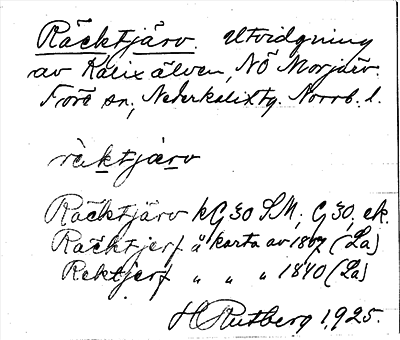 Räcktjärv. Utvidgning
av Kalix älven, NÖ Morjärv.
Töre sn, Nederkalix tg. Norrb. l.
räktjärv
Räcktjärv kG 30 SM, G 30, ek.
Räcktjerf å karta av 1867 (La)
Rektjerf " " " 1840 (La)
H Rutberg 1925.